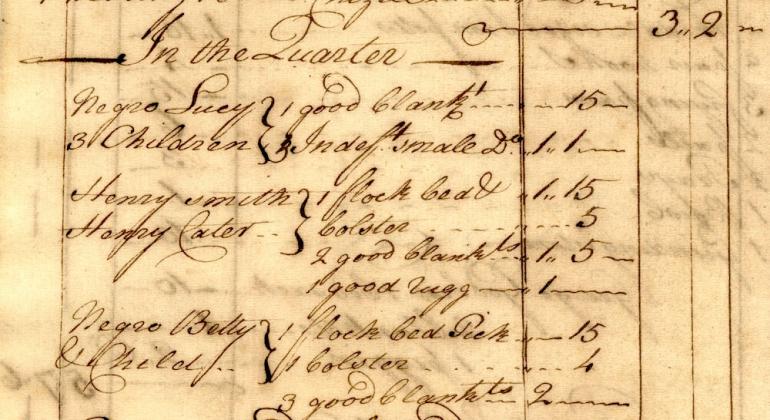 3,, 2
In the Quarter
Negro Lucy } 1 good blankt 15
3 Children } 3 Indeft smale Do 1,, 1
Henry Smith } 1 flock bed & 1,, 15
Henry Cater } bolster 5
2 good blankts 1,, 5
1 good rugg 1
Negro Betty } 1 flock bed Tick 15
& Child } 1 bolster 4
3 good blankts 2